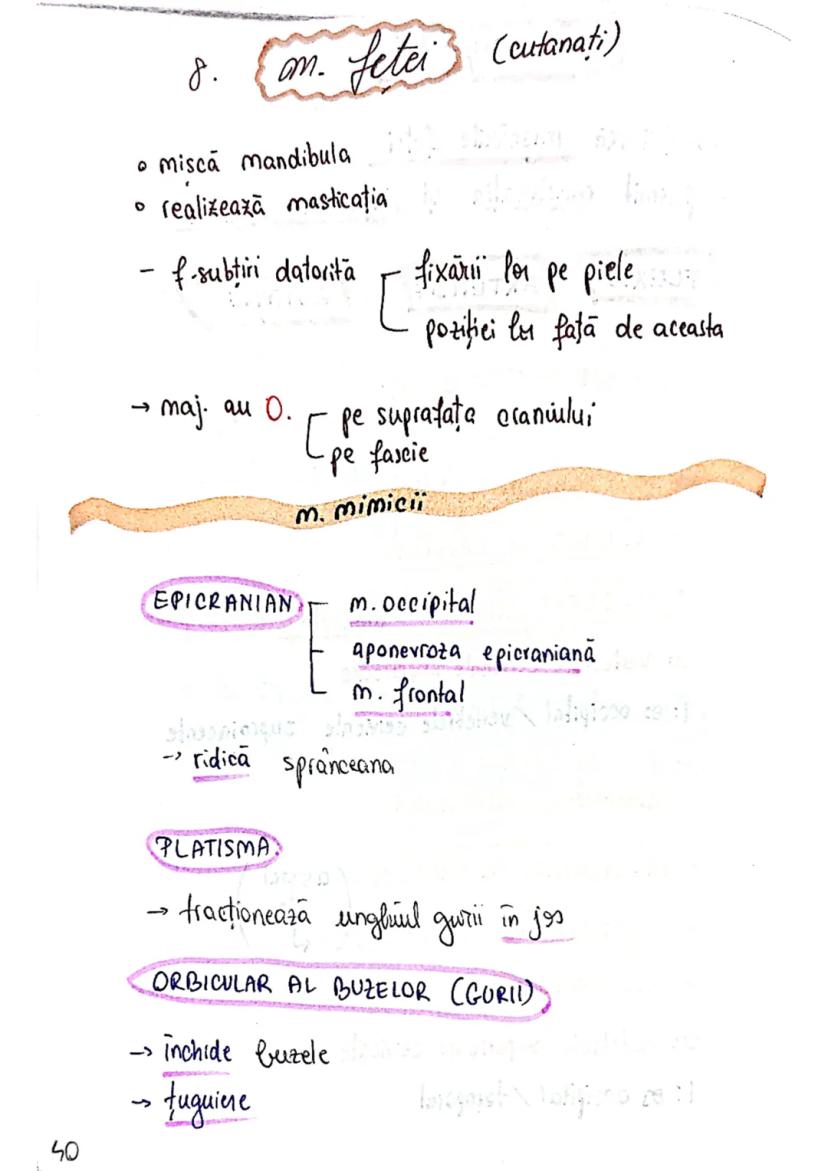 8. m. feței (cutanați)
o mișcă mandibula
o realizează masticația
- f. subțiri datorită fixării lor pe piele
poziției lor față de aceasta
→ maj. au O. pe suprafața craniului
pe fascie
m. mimicii
EPICRANIAN m. occipital
aponevroza epicraniană
m. frontal
→ ridică sprânceana
PLATISMA
→ tracționează unghiul gurii în jos
ORBICULAR AL BUZELOR (GURII)
→ închide buzele
→ țuguiere
40